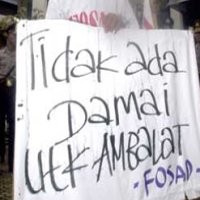 Tidak ada
Damai
Utk AMBALAT
-FOSAD-